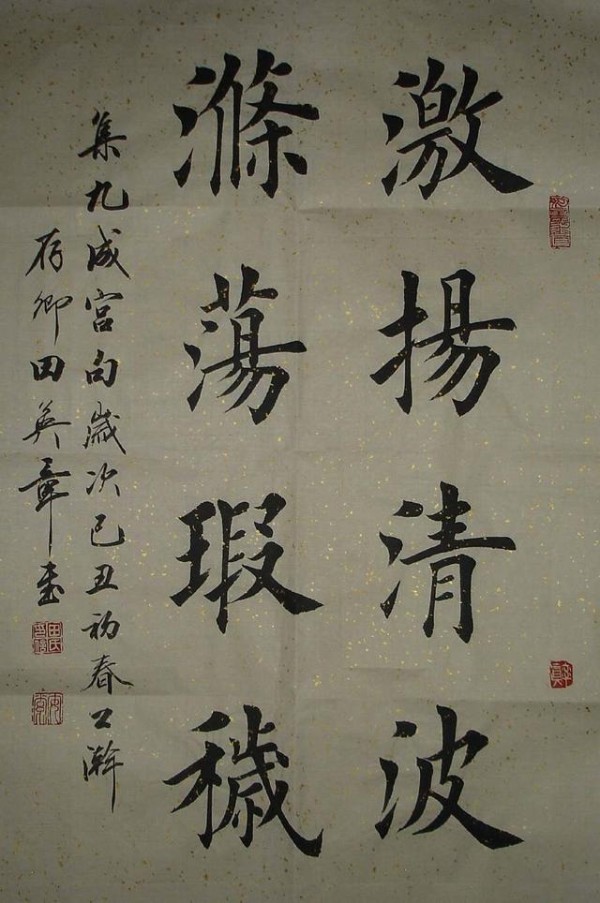 激揚清波
滌蕩瑕穢
集九成宫句歲次己丑初春公瀚
存卿田英章書